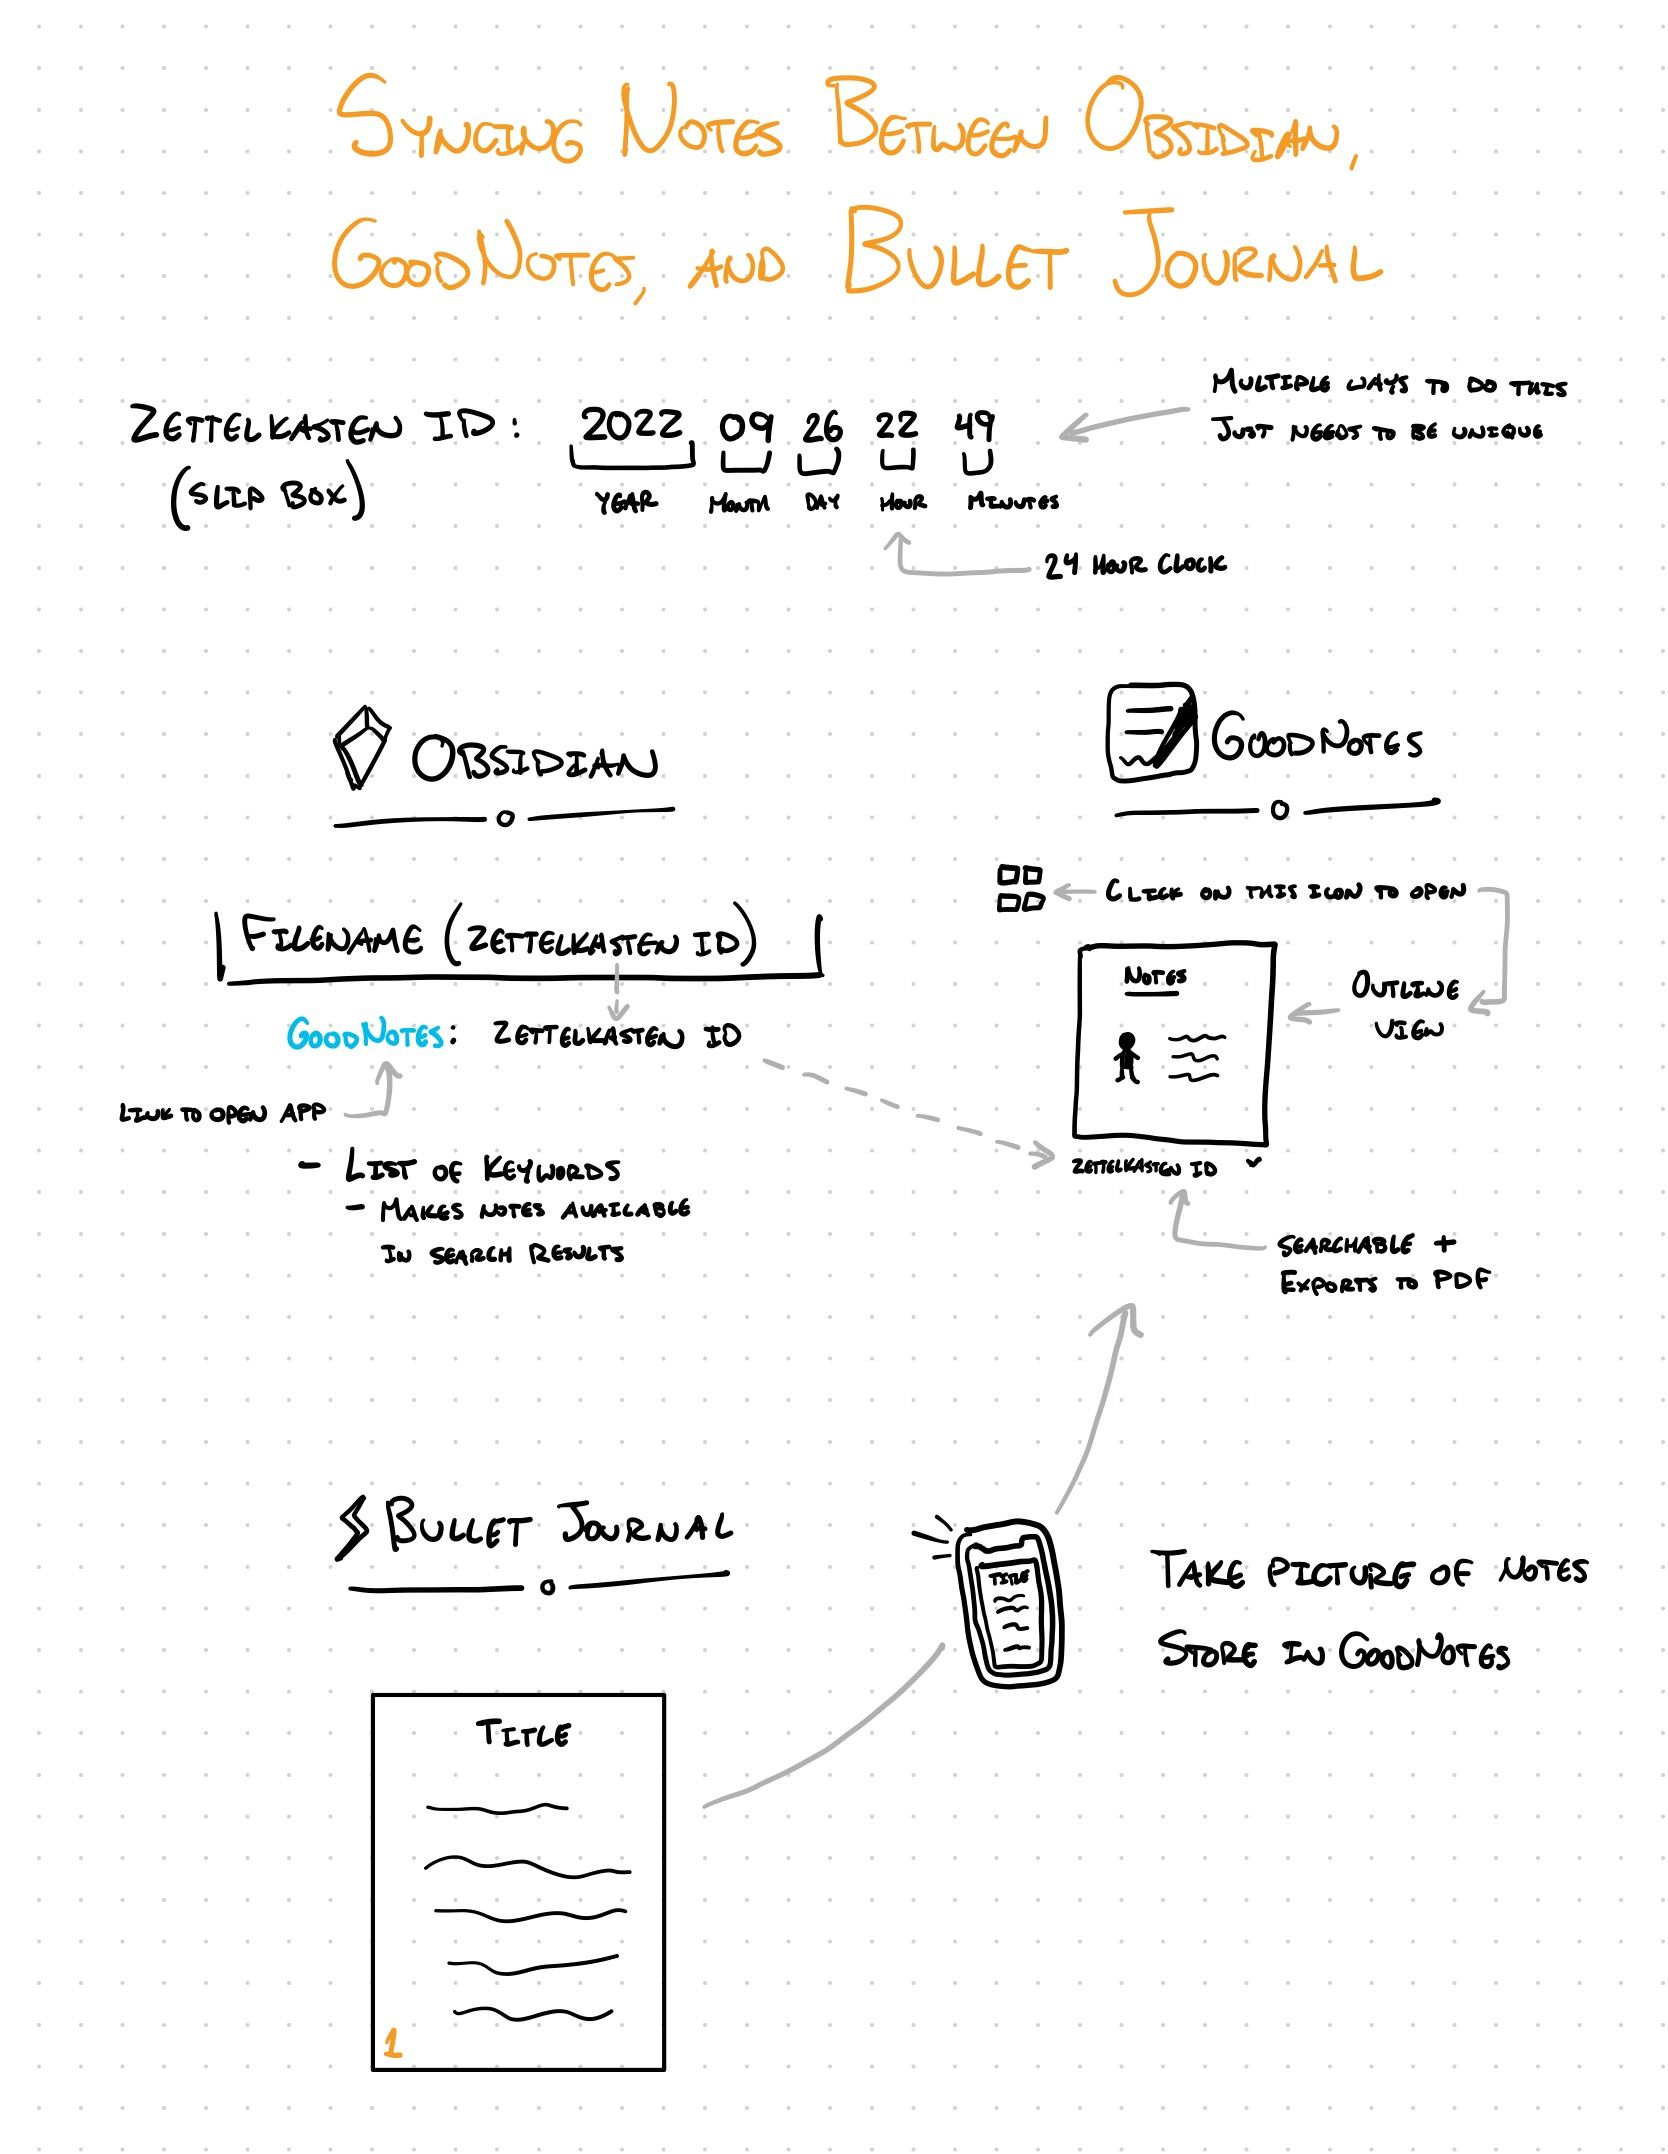 Syncing Notes Between Obsidian,
GoodNotes, and Bullet Journal
Zettelkasten ID: 2022 09 26 22 49
(Slip Box)
Year Month Day Hour Minutes
Multiple ways to do this
Just needs to be unique
24 Hour Clock
Obsidian
Filename (Zettelkasten ID)
GoodNotes: Zettelkasten ID
Link to open app
- List of Keywords
- Makes notes available
in search results
GoodNotes
Click on this icon to open
Notes
Outline
view
Zettelkasten ID
Searchable +
Exports to PDF
Bullet Journal
Title
1
Title
Take picture of notes
Store in GoodNotes